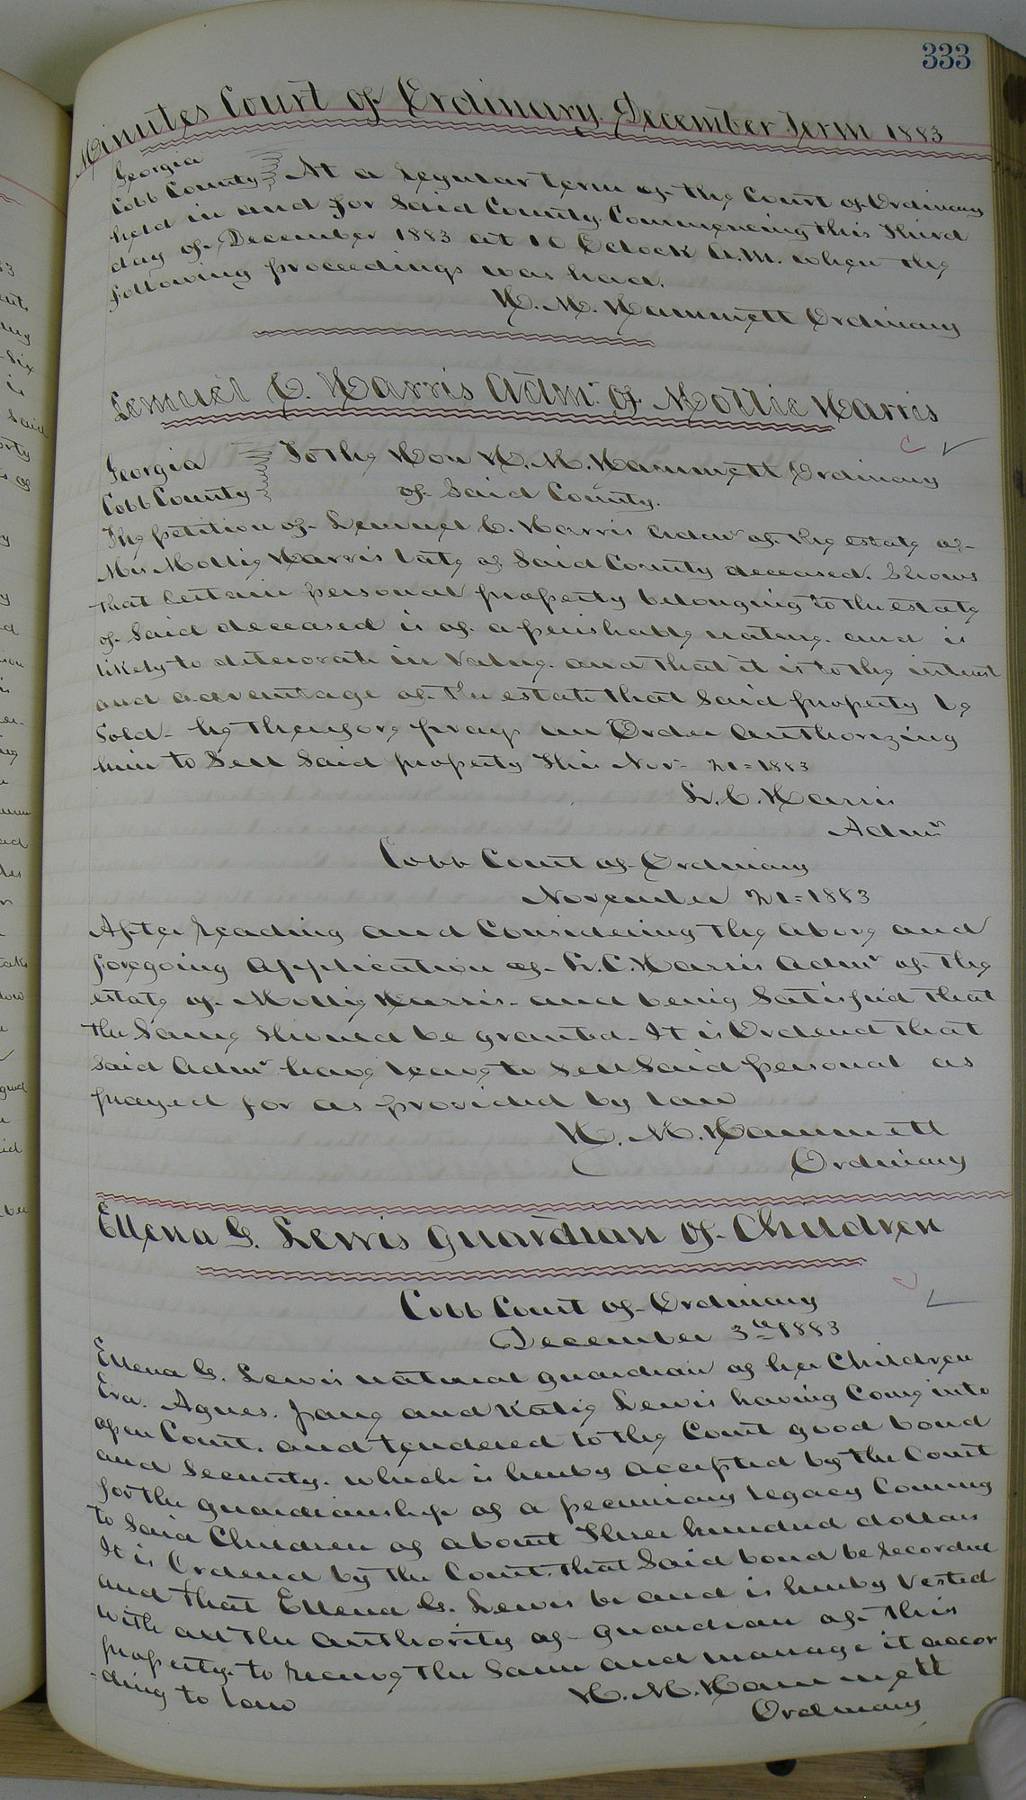 333
Minutes Court of Ordinary. December Term 1883
Georgia
Cobb County At a regular term of the Court of Ordinary
held in and for Said County. Commencing this third
day of December 1883 at 10 Oclock A.M. when the
following proceedings was had.
H. M. Hammett Ordinary
Lemuel C. Harris Admr. of Mollie Harris
Georgia To the Hon H. M. Hammett Ordinary
Cobb County of Said County.
The petition of Lemuel C. Harris Admr of the estate of
Mollie Harris late of Said County deceased. Shows
that Certain personal property belonging to the estate
of Said deceased is of a perishable nature. and is
likely to deteriorate in Value. and that it is to the interest
and advantage of the estate that Said property be
Sold - he therefore prays an Order authorizing
him to Sell Said property This Nov - 21 = 1883
L. C. Harris
Admr
Cobb Court of Ordinary
November 21 = 1883
After reading and Considering the above and
foregoing Application of L. C. Harris Admr of the
estate of Mollie Harris - and being Satisfied that
the Same Should be granted - It is Ordered that
Said Admr have leave to Sell Said personal as
prayed for as provided by law
H. M. Hammett
Ordinary
Ellena G. Lewis Guardian of Children
Cobb Court of Ordinary
December 3rd 1883
Ellena G. Lewis natural guardian of her Children
Eva. Agnes. Jane and Katie Lewis having Come into
open Court. and tendered to the Court good bond
and Security. which is hereby accepted by the Court
for the guardianship of a pecuniary legacy Coming
to Said Children of about Three hundred dollars
It is Ordered by the Court. that Said bond be recorded
and that Ellena G. Lewis be and is hereby Vested
with all the authority of guardian of this
property. to receive the Same and manage it accor
-ding to law
H. M. Hammett
Ordinary